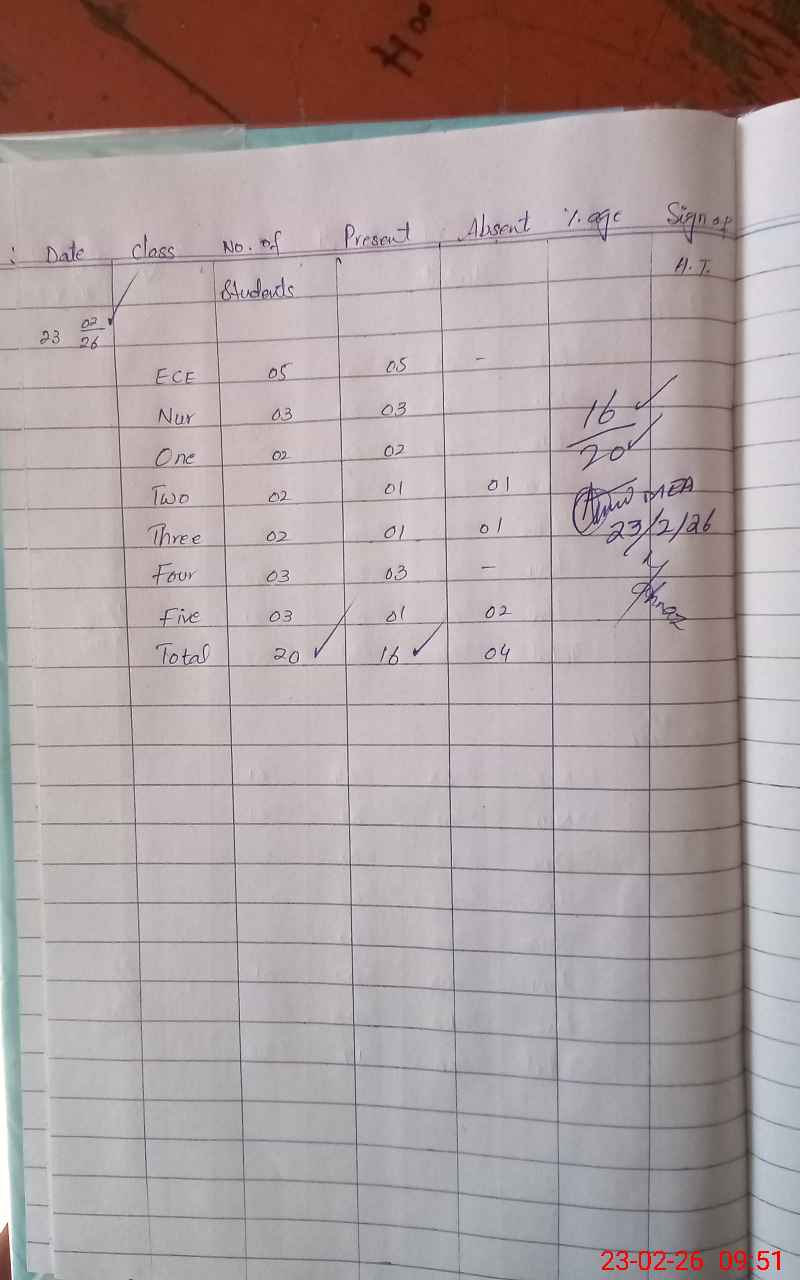 Hoo
: Date Class No. of Present Absent %age Sign of
Students H.T.
23 02/26
ECE 05 05 -
Nur 03 03
One 02 02
Two 02 01 01
Three 02 01 01
Four 03 03 -
Five 03 01 02
Total 20 16 04
16
20
MEA
23/2/26
23-02-26 09:51